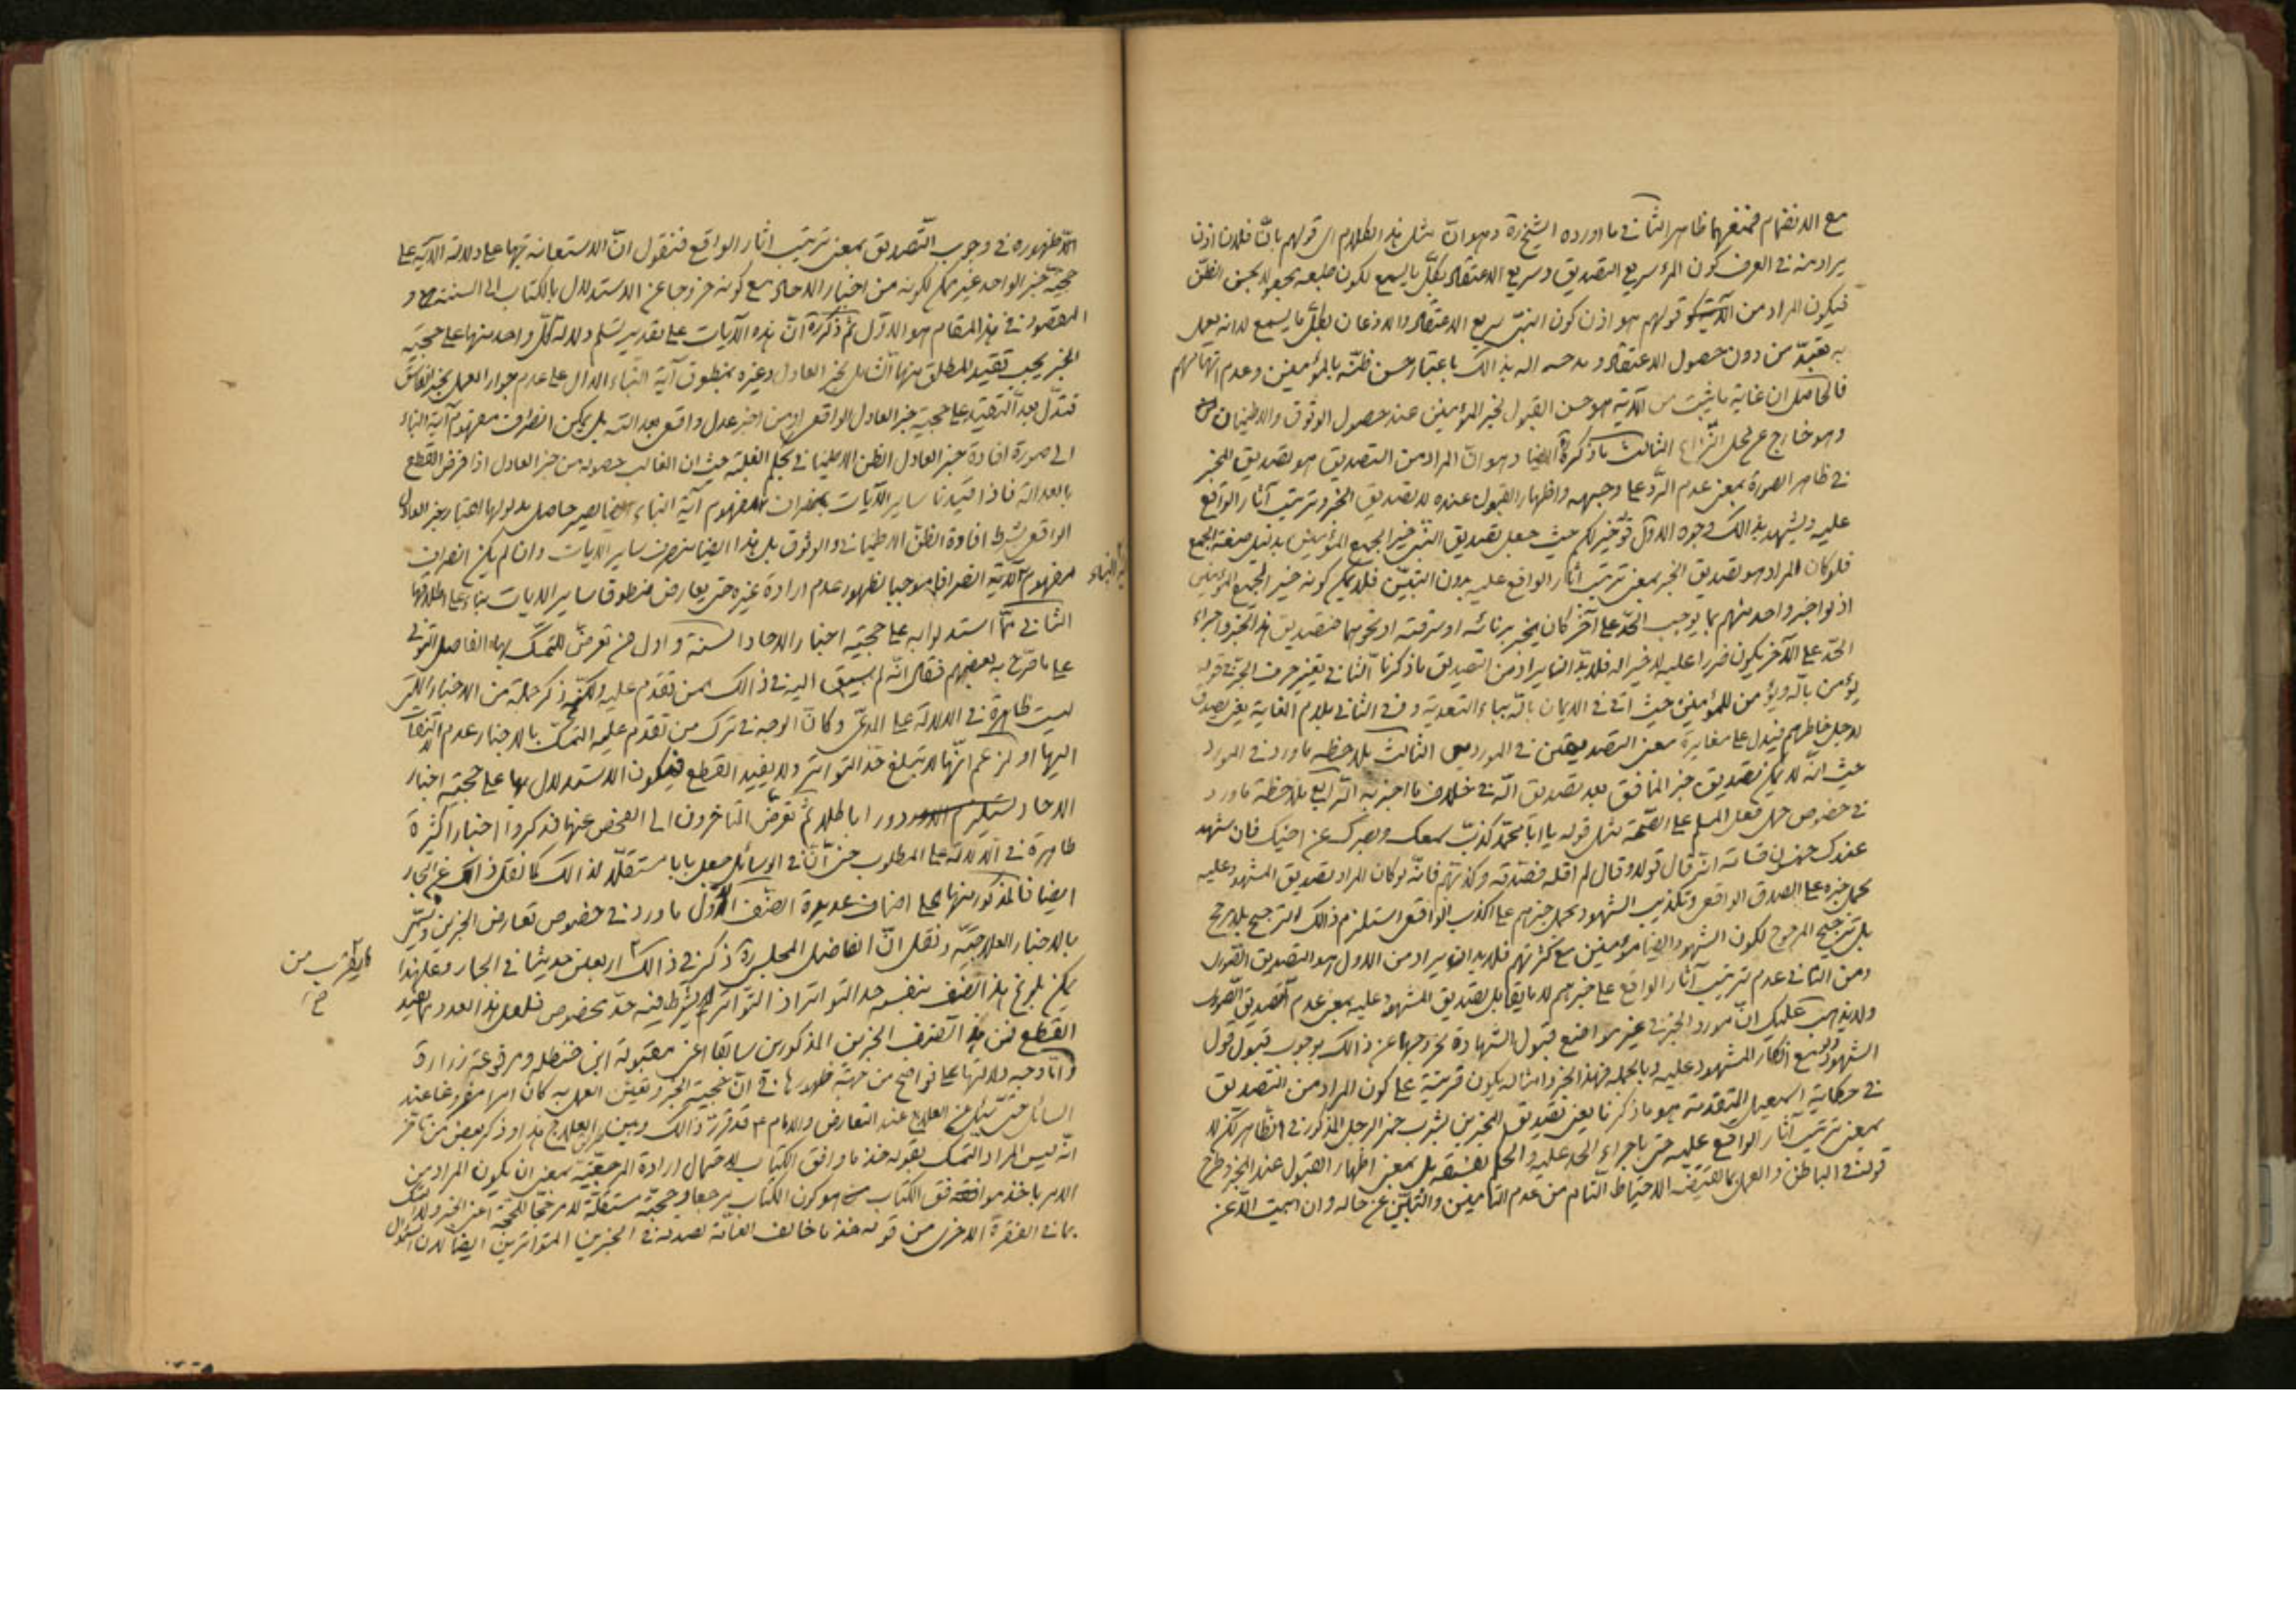 مع الانضمام فمنعهما ظاهر الثاني ما اورده الشيخ ره وهو انّ مثل هذا الكلام اى قولهم بانّ فلانا اذن
يراد منه في العرف كون المرء سريع التصديق وسريع الاعتقاد بكلّ ما يسمع لكون طبعه
فيكون المراد من الآية قولهم هو اذن كون النبيّ سريع الاعتقاد والاذعان بكلّ ما يسمع لا انه يعمل
به تعبدّا من دون حصول الاعتقاد و مدحه اله بذالك باعتبار حسن ظنّه بالمؤمنين وعدم اتهامهم
فالحاصل ان غاية ما يثبت من الآية هو حسن القبول لخبر المؤمنين عند حصول الوثوق والاطمينان
وهو خارج عن محل النّزاع الثالث ما ذكره ره ايضا وهو انّ المراد من التصديق هو تصديق المخبر
في ظاهر الصورة بمعنى عدم الردّ على وجهه واظهار القبول عنده لا تصديق الخبر وترتيب آثار الواقع
عليه ويشهد بذالك وجوه الاوّل قوله خير لكم حيث جعل تصديق النبيّ خيرا لجميع المؤمنين بدليل صيغة الجمع
فلو كان المراد هو تصديق الخبر بمعنى ترتيب اثار الواقع عليه بدون التبيّن فلا يمكن كونه خيرا لجميع المؤمنين
اذ لو اخبر واحد منهم بما يوجب الحدّ على آخر كان يخبر بزنائه او سرقته او نحوهما فتصديق هذا المخبر واجراء
الحدّ على الآخر يكون ضررا عليه لا خيرا له فلا بدّ ان يراد من التصديق ما ذكرنا الثاني تغيير حرف الجرّ في قوله
يؤمن بالله ويؤمن للمؤمنين حيث اتى في الايمان بالله بباء التعدية وفي الثاني بلام الغاية يعني يصدق
لاجل خاطرهم فيدل على مغايرة معنى التصديقين في الموردين الثالث بملاحظه ما ورد في المورد
حيث انّه لا يمكن تصديق خبر المنافق بعد تصديق الله في خلاف ما اخبر به الرّابع ملاحظة ما ورد
في خصوص حمل فعل المسلم على الصّحّة مثل قوله يا ابا محمّد كذّب سمعك وبصرك عن اخيك فان شهد
عندك خمسون قسامة انّه قال قولا وقال لم اقله فصدّقه وكذبّهم فانّه لو كان المراد تصديق المشهود عليه
بحمل خبره على الصدق الواقعى وتكذيب الشهود بحمل خبرهم على الكذب الواقعى استلزم ذالك الترجيح بلا مرجح
بل ترجيح المرجوح لكون الشهود ايضا مؤمنين مع كثرتهم فلا بد ان يراد من الاول هو التصديق الصّورى
ومن الثاني عدم ترتيب آثار الواقع على خبرهم لا ما يقابل تصديق المشهود عليه بمعنى عدم التصديق الصّورى
ولا يذهب عليك انّ مورد الخبر في غير مواضع قبول الشهادة لخروجها عن ذالك بوجوب قبول قول
الشهود ولو مع انكار المشهود عليه وبالجمله فهذا الخبر وامثاله يكون قرينة على كون المراد من التصديق
في حكاية اسمعيل المتقدمة هو ما ذكرنا يعنى تصديق المخبرين بشرب خمر الرجل المذكور في الظاهر لكن لا
بمعنى ترتيب آثار الواقع عليه حتى باجراء الحد عليه والحكم بفسقه بل بمعنى اظهار القبول عند المخبر وطرح
قوله في الباطن والعمل بما يقتضيه الاحتياط التام من عدم التأمين والتبيّن عن حاله وان ابيت الّا عن
الّا ظهوره في وجوب التّصديق بمعنى ترتيب اثار الواقع فنقول انّ الاستعانة بها على دلالة الآية على
حجيّة خبر الواحد غير ممكن لكونه من اخبار الاحاد مع كونه خروجا عن الاستدلال بالكتاب الى السنة و
المقصود في هذا المقام هو الاوّل ثمّ ذكر ره انّ هذه الآيات على تقدير تسليم دلالة كلّ واحد منها على حجيّة
الخبر يجب تقييد المطلق منها الشامل لخبر العادل وغيره بمنطوق آية النباء الدّال على عدم جواز العمل بخبر الفاسق
فتدلّ بعد التقييد على حجية خبر العادل الواقعى او من اخبر عدل واقعى بعدالته بل يمكن انصراف مفهوم آية النباء
الى صورة افادة خبر العادل الظن الاطمينانى بحكم الغلبة حيث ان الغالب حصوله من خبر العادل اذا فرض القطع
بالعدالة فاذا قيّدنا ساير الآيات بمفهوم آية النباء ايضا يصير حاصل مدلولها اعتبار خبر العادل
الواقعى بشرط افادة الظنّ الاطمينانى والوثوق بل هذا ايضا منصرف ساير الآيات وان لم يكن انصراف
مفهوم الآية انصرافا موجبا لظهور عدم ارادة غيره حتى يعارض منطوقا ساير الايات بناء على اطلاقها
آية النباء
الثاني ممّا استدلوا به على حجيّة اخبار الاحاد السنة واول من تعرّض للتمسّك بها الفاضل التونى
على ما صرّح به بعضهم فقال انّه لم يسبق اليه في ذالك ممن تقدّم عليه ولكنّه ذكر جملة من الاخبار الّتى
ليست ظاهرة في الدلالة على المدّعى وكانّ الوجه في ترك من تقدّم عليه التمسّك بالاخبار عدم التفاتهم
اليها او لزعم انّها لا تبلغ حدّ التواتر ولا يفيد القطع فيكون الاستدلال بها على حجيّة اخبار
الاحاد دورا باطلا ثمّ تعرّض المتاخرون الى الفحص عنها فذكروا اخبارا كثيرة
ظاهرة في الدلالة على المطلوب حتى انّ في الوسائل جعل بابا مستقلّا لذالك كما نقل ذالك عن البحار
ايضا فالمذكور منها على اصناف عديدة الصّنف الاوّل ما ورد في خصوص تعارض الخبرين وتسمّى
بالاخبار العلاجيّة ونقل انّ الفاضل المجلسى ره ذكر في ذالك اربعين حديثا في البحار وعليهذا
يمكن بلوغ هذا الصّنف بنفسه حد التواتر اذ التّواتر لم يشترط فيه حدّ مخصوص فلعل هذا العدد مما يفيد
ما يقرب من
القطع فمن هذا الصّنف الخبرين المذكورين سابقا اعنى مقبولة ابن حنظله ومرفوعة زرارة
وامّا وجه دلالتها على فواضح من جهة ظهورها في انّ حجية الخبر وتعيّن العمل به كان امرا مفروغا عند
السائل حتى سئل عن العلاج عند التعارض والامام ع قد قرّره ذالك وبيّن العلاج هذا وذكر بعض من تاخر
انّه ليس المراد التمسك بقوله خذ ما وافق الكتاب لاحتمال ارادة المرجعيّة بمعنى ان يكون المراد من
الامر باخذ موافق الكتاب هو كون الكتاب مرجعا وحجية مستقلة لا مرجّحا للحجّة اعنى الخبر ولا التمسك
بما في الفقرة الاخرى من قوله خذ ما خالف العامّة لصدقه في الخبرين المتواترين ايضا لان السؤال